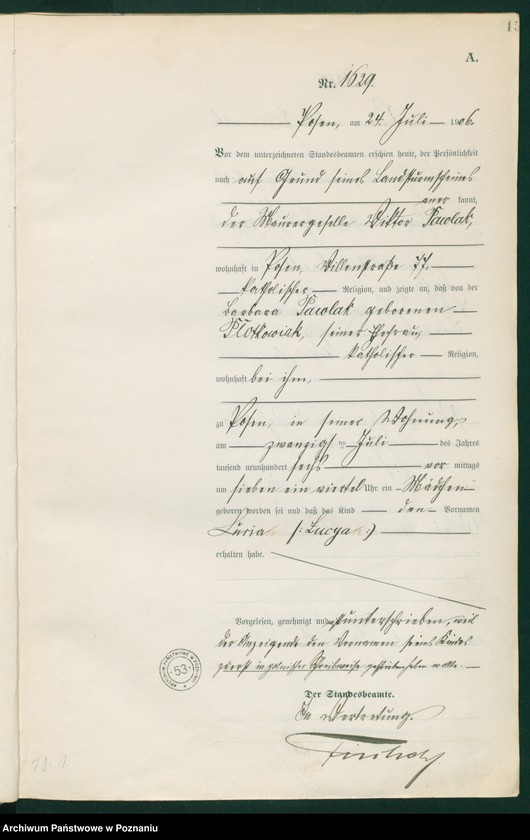 13
A.
Nr. 1629.
Posen, am 24. Juli 1906.
Vor dem unterzeichneten Standesbeamten erschien heute, der Persönlichkeit
nach auf Grund seines Landsturmscheines
aner kannt,
der Maurergeselle Viktor Pawolak,
wohnhaft in Posen, 77.
katholischer Religion, und zeigte an, daß von der
Barbara Pawolak geborenen
Plotkowiak, seiner Ehefrau,
katholischer Religion,
wohnhaft bei ihm,
zu Posen, in seiner Wohnung,
am zwanzigsten Juli des Jahres
tausend neunhundert sechs vor mittags
um sieben ein viertel Uhr ein Mädchen
geboren worden sei und daß das Kind den Vornamen
Lucia (: Lucya :)
erhalten habe.
Vorgelesen, genehmigt und unterschrieben, weil
der Anzeigende den Vornamen seines Kindes
in polnischer Schreibweise wollte.
Der Standesbeamte.
In Vertretung.
ARCHIWUM PAŃSTWOWE W POZNANIU
53
Archiwum Państwowe w Poznaniu